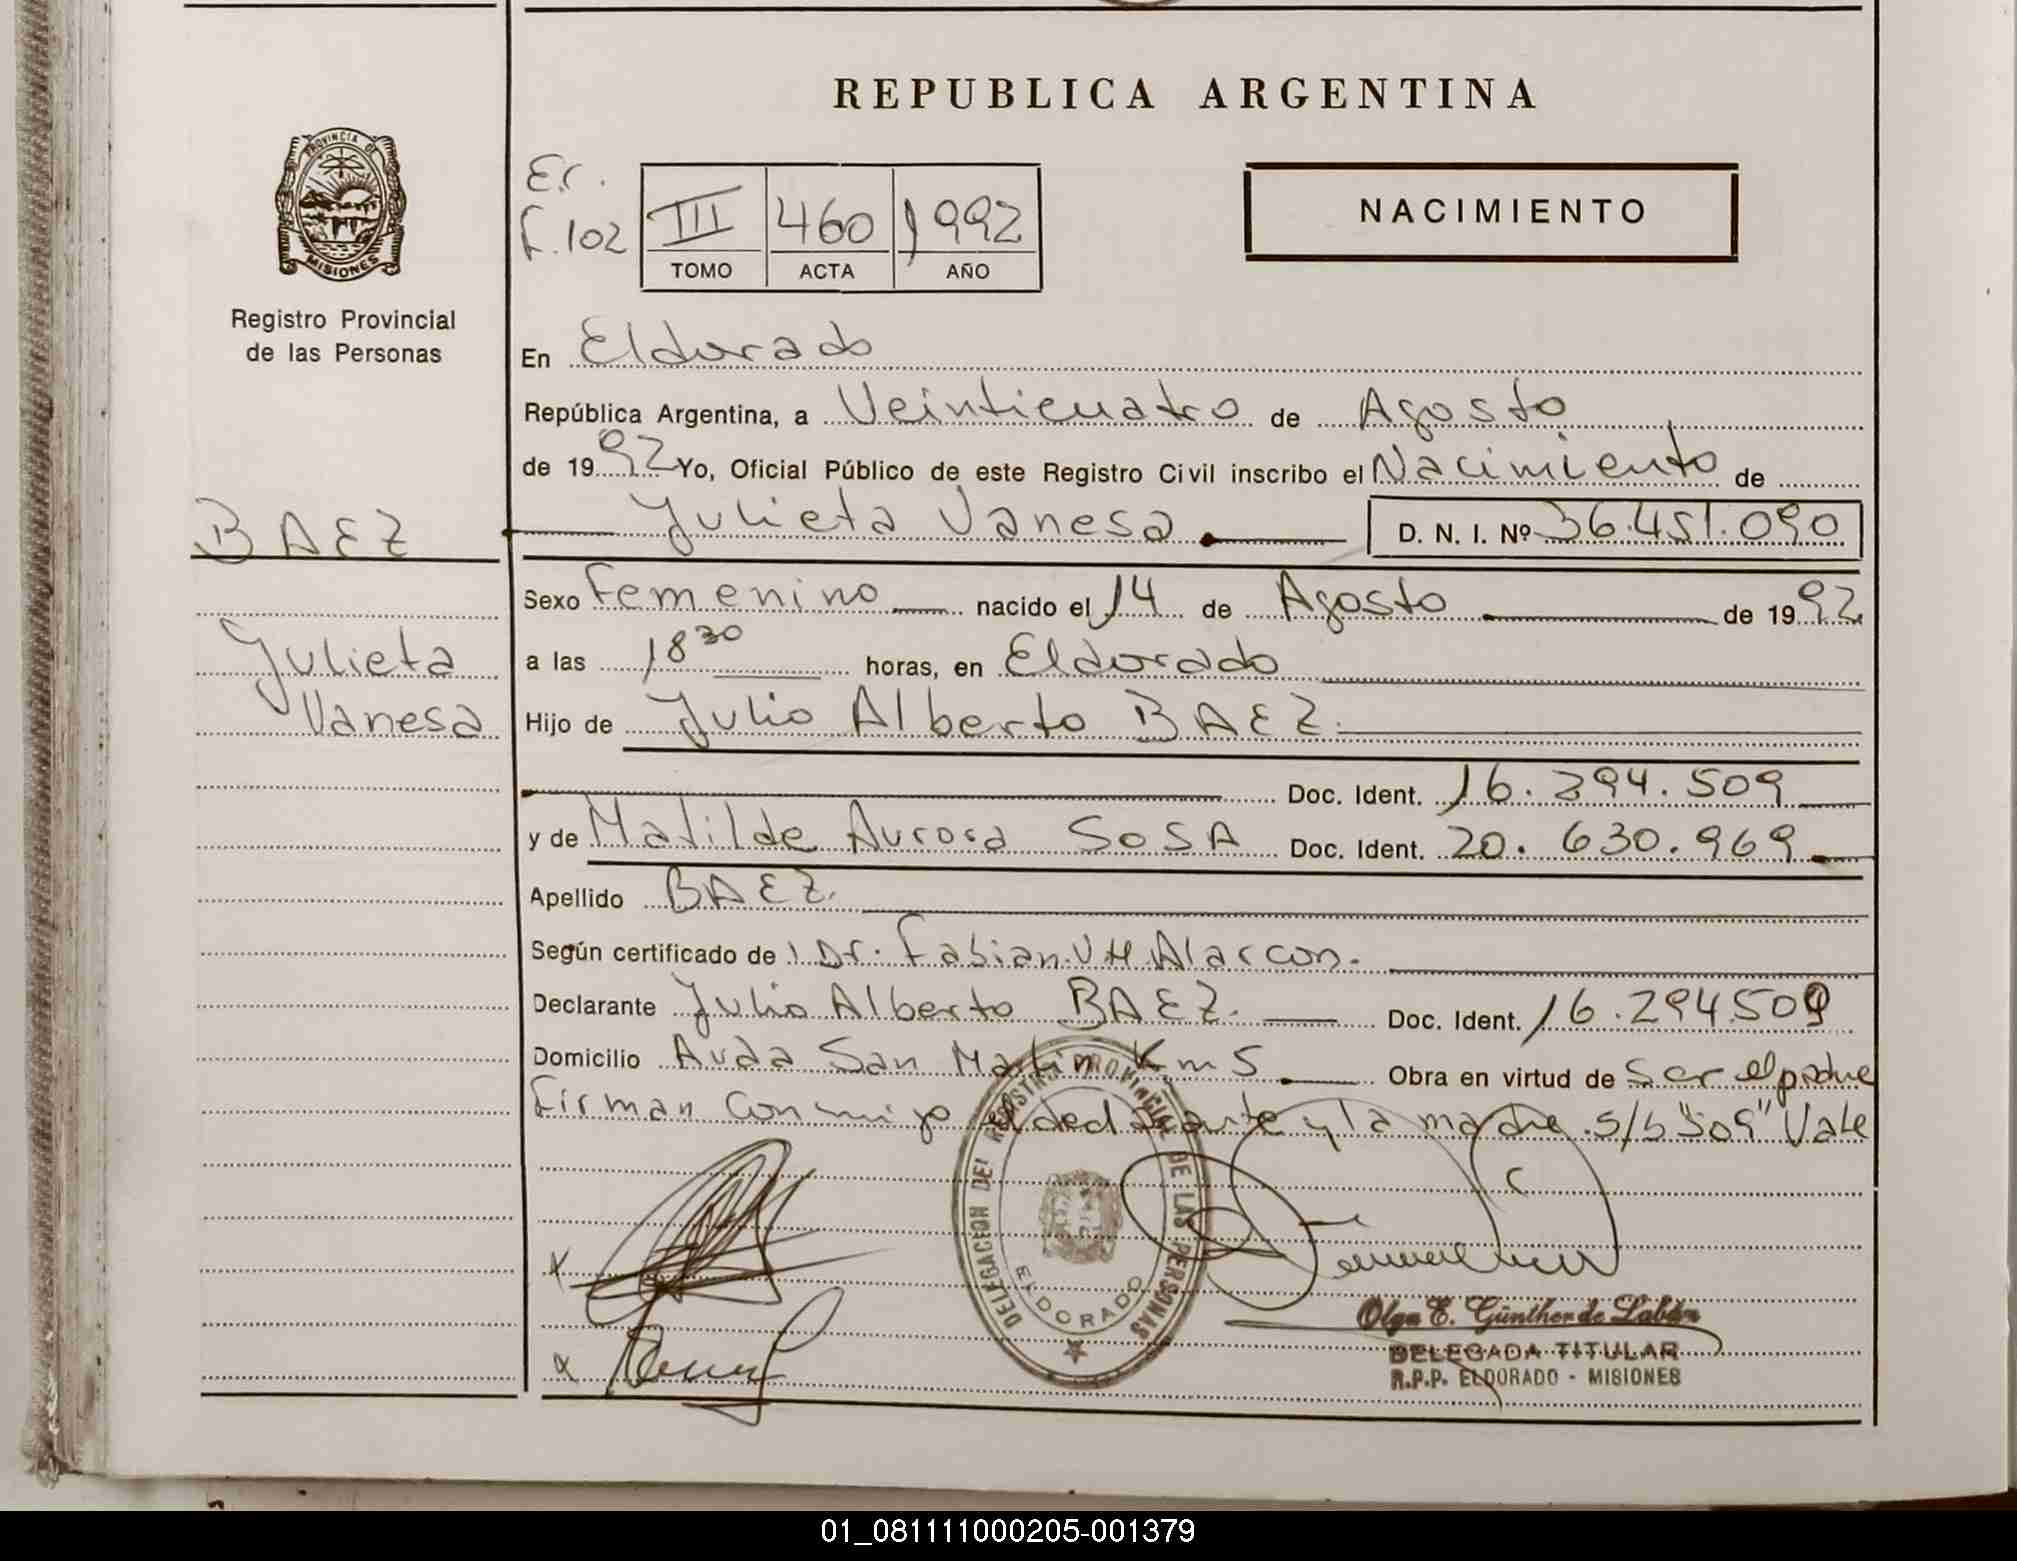 REPUBLICA ARGENTINA
PROVINCIA DE
MISIONES
Registro Provincial
de las Personas
E.C.
F.102
III 460 1992
TOMO ACTA AÑO
NACIMIENTO
En Eldorado
República Argentina, a Veinticuatro de Agosto
de 1992 Yo, Oficial Público de este Registro Civil inscribo el Nacimiento de
BAEZ
Julieta Vanesa D. N. I. Nº 36.451.090
Sexo Femenino nacido el 14 de Agosto de 1992
Julieta
Vanesa
a las 18 30 horas, en Eldorado
Hijo de Julio Alberto BAEZ.
Doc. Ident. 16.294.509
y de Matilde Aurora SOSA Doc. Ident. 20.630.969
Apellido BAEZ.
Según certificado de Dr. Fabian VH Alarcon.
Declarante Julio Alberto BAEZ. Doc. Ident. 16.294.509
Domicilio Avda San Martin Km 5 Obra en virtud de Ser el padre
Firman conmigo el declarante y la madre. s/b "509" Vale
DELEGACION DEL REGISTRO PROVINCIAL DE LAS PERSONAS
ELDORADO
Olga E. Günther de Labán
DELEGADA TITULAR
R.P.P. ELDORADO - MISIONES
01_081111000205-001379